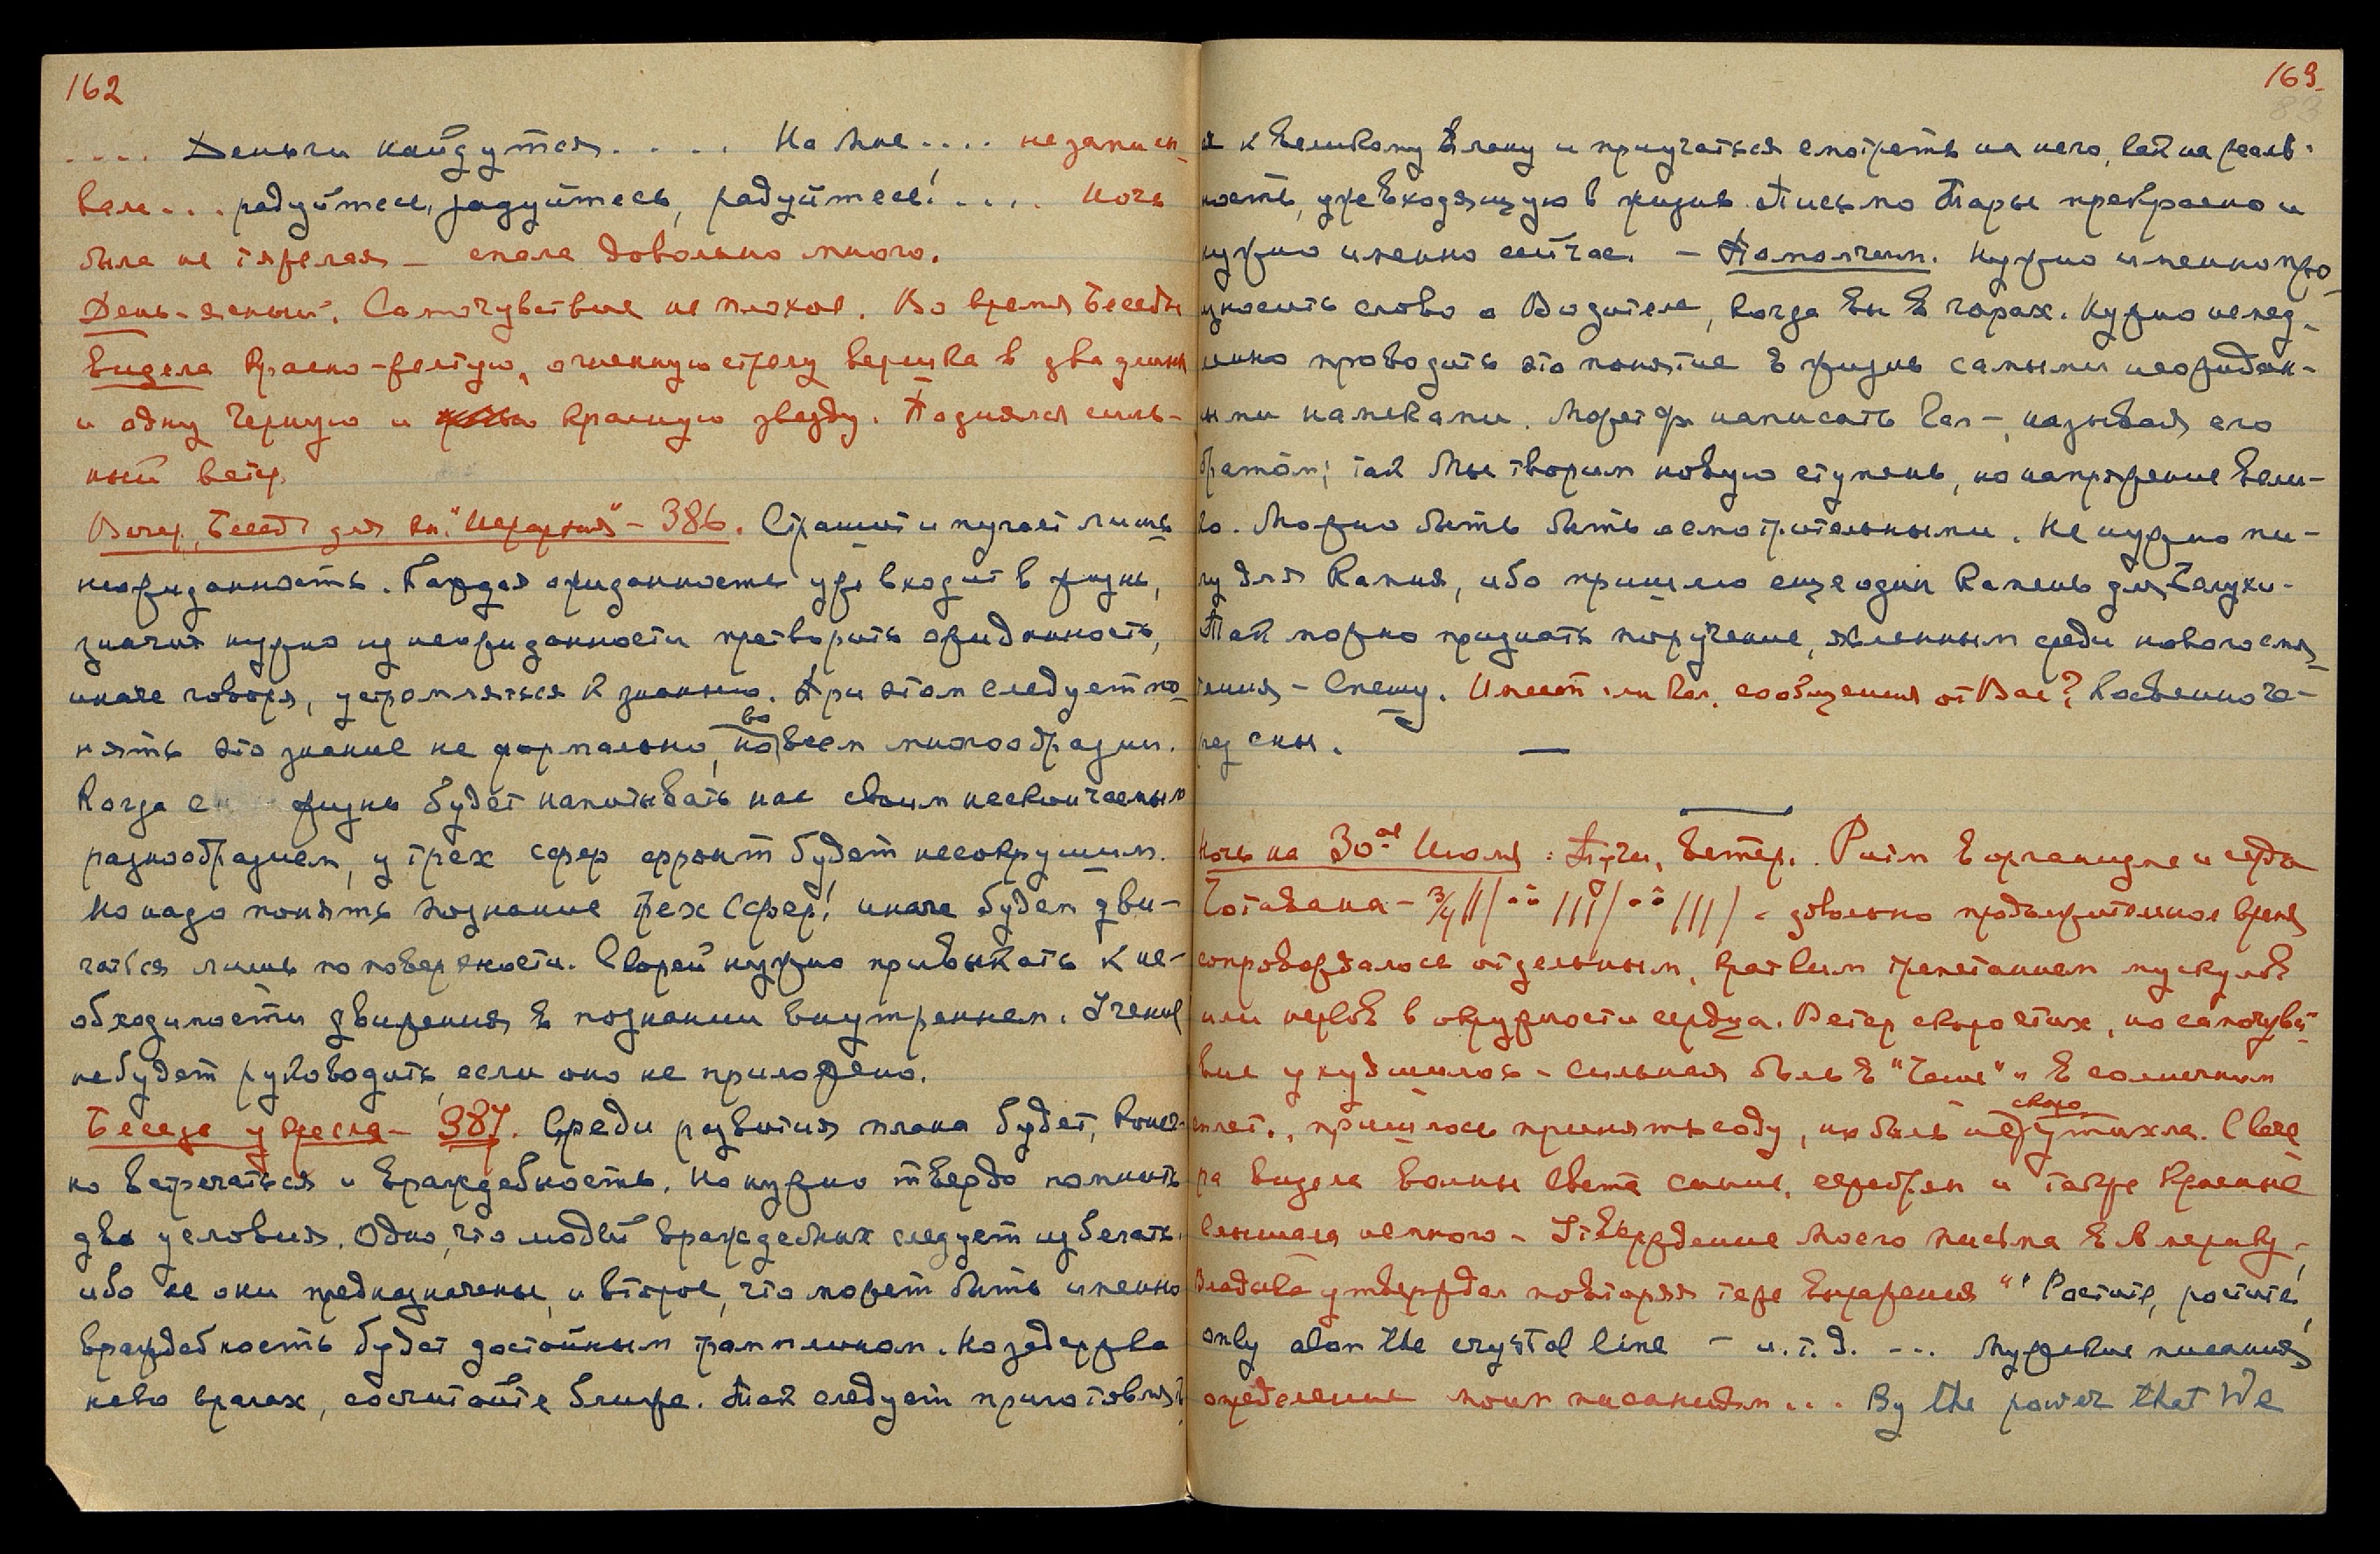 162
.... Деньги найдутся..... На Мне.... не записы-
вала... радуйтесь, радуйтесь, радуйтесь!..... Ночь
была не тяжелая – спала довольно много.
День – ясный. Самочувствие не плохое. Во время Беседы
видела красно-желтую, огненную стрелу вершка в два длины
и одну черную и красную звезду. Поднялся силь-
ный ветер.
Вечер, Беседа для кн. "Иерархия" – 386. Страшит и пугает лишь
неожиданность. Каждая ожиданность уже входит в жизнь,
значит нужно из неожиданности претворить ожиданность,
иначе говоря, устремляться к знанию. При этом следует по-
нять это знание не формально, но во всем многообразии.
Когда жизнь будет напитывать нас своим нескончаемым
разнообразием, у трех сфер фронт будет несокрушим.
Но надо понять познание трех Сфер! иначе будем дви-
гаться лишь по поверхности. Скорей нужно привыкать к не-
обходимости движения в познании внутреннем. Учение
не будет руководить, если оно не приложено.
Беседа у кресла – 387. Среди развития плана будет, конеч-
но встречаться и враждебность. Но нужно твердо помнить
два условия. Одно, что людей враждебных следует избегать,
ибо не они предназначены, и второе, что может быть именно
враждебность будет достойным трамплином. Но задержка
не во врагах, сосчитайте ближе. Так следует приготовлят
163.
83
я к Великому Плану и приучаться смотреть на него, как на реаль-
ность, уже входящую в жизнь. Письмо Тары прекрасно и
нужно именно сейчас. – Помолчим. Нужно именно про-
износить слово о Водителе, когда Вы в горах. Нужно немед-
ленно проводить это понятие в жизнь самыми неожидан-
ными намеками. Может Ф. написать Кал –, называя его
братом; так Мы творим новую ступень, но напряжение вели-
ко. Можно быть быть осмотрительными. Не нужно пи-
для Камня, ибо пришло еще один Камень для
Так можно признать поручение, явленным среди нового смя-
тения – Спешу. Имеет ли Кал. сообщения от Вас? Косвенно че-
рез сны. —
Ночь на 30ое Июля: Тучи, Ветер. Ритм в организме и сердца
довольно продолжительное время
сопровождалось отдельным, кратким трепетанием мускулов
или нервов в окружности сердца. Ветер скоро стих, но самочувст-
вие ухудшилось – сильная боль в "Чаше" и в солнечном
сплет., пришлось принять соду, но боль не скоро утихла. С вече
ра видела волны Света синие, серебрян и также красные
Слышала немного – Утверждение Моего письма в Америку –
Владыка утверждал повторяя те же выражения "" Растите, растите!
only alon the crystal line – и.т.д. ... Мужские писания,
определение моим писаниям... By the power that We